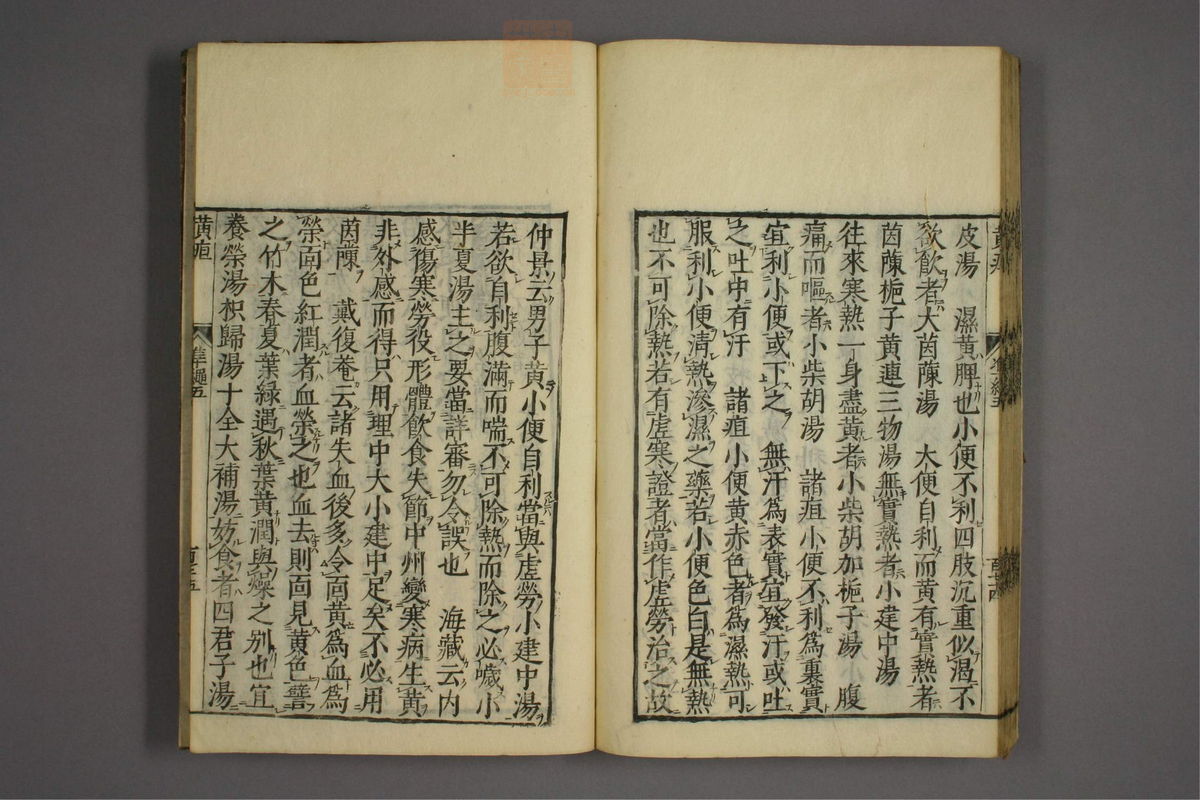 皮湯　濕黄脾也小便不利四肢沉重似渴不
欲飲者大茵蔯湯　大便自利而黄有實熱者
茵蔯梔子黄連三物湯無實熱者小建中湯
往來寒熱一身盡黄者小柴胡加梔子湯　腹
痛而嘔者小柴胡湯　諸疸小便不利爲裏實
宜利小便或下之　無汗爲表實宜發汗或吐
之吐中有汗　諸疸小便黄赤色者爲濕熱可
服利小便淸熱滲濕之藥若小便色白是無熱
也不可除熱若有虛寒證者當作虛勞治之故
仲景云男子黄小便自利當與虛勞小建中湯
若欲自利腹滿而喘不可除熱而除之必噦小
半夏湯主之要當詳審勿令誤也　海藏云内
感傷寒勞役形體飲食失節中州變寒病生黄
非外感而得只用理中大小建中足矣不必用
茵蔯　戴復菴云諸失血後多令面黄爲血爲
榮面色紅潤者血榮之也血去則面見黄色譬
之竹木春夏葉緑遇秋葉黄潤與燥之别也宜
養榮湯枳歸湯十全大補湯妨食者四君子湯
黄疸
準繩五
百三五